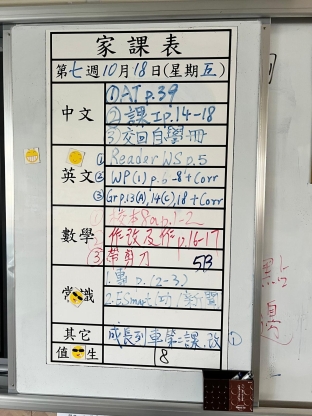 家課表
第七週10月18日(星期五)
中文
①AT p.39
②課工p.14-18
③交回自學冊
英文
① Reader WS p.5
② WP(1) p.6-8 + Corr
③ Gr p.13(A),14(C),18 + Corr
數學
p.1-2
作改及作p.16-17
③帶剪刀
5B
常識
1. p.(2-3)
2.
其它
成長列車第二課.改
①
值 生
8